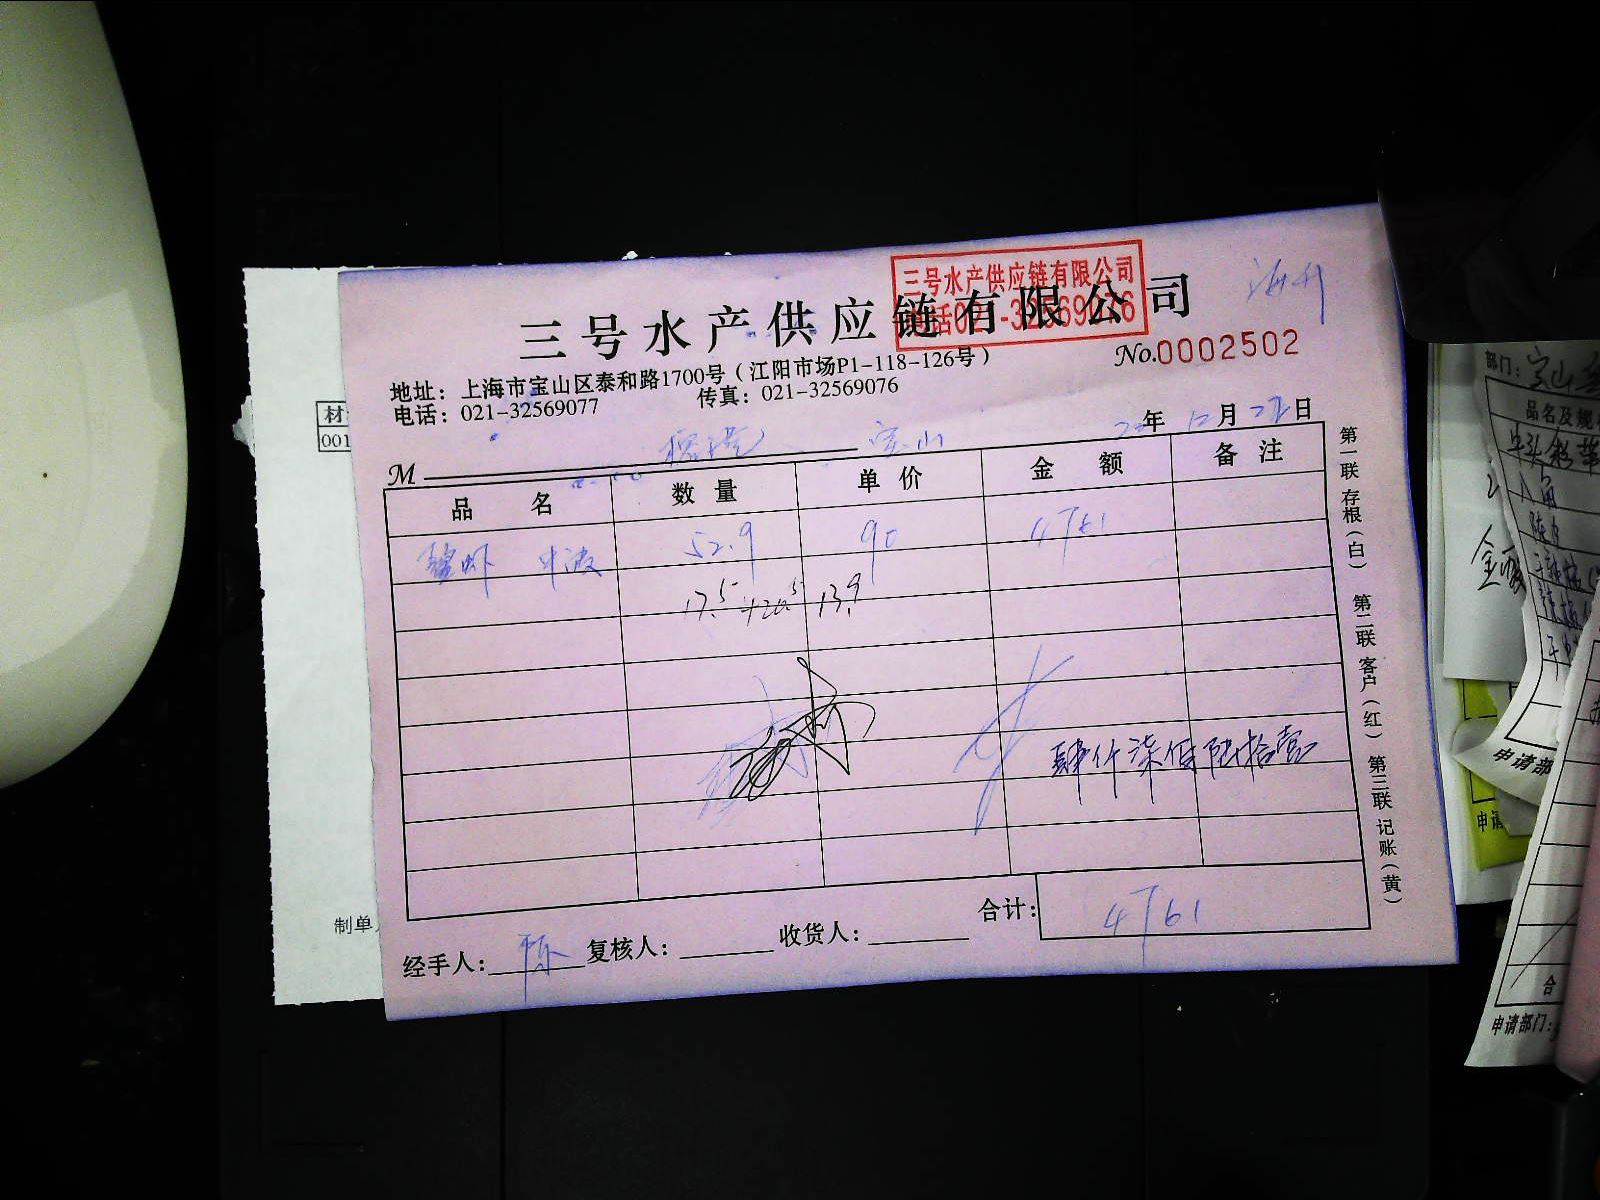 三号水产供应链有限公司
三号水产供应链有限公司
电话021-32569076
No.0002502
地址：上海市宝山区泰和路1700号（江阳市场P1-118-126号）
电话：021-32569077 传真：021-32569076
宝山
年 12月 日
M
品名 数量 单价 金额 备注
52.9 90 4761
17.5 +20.5 13.9
肆仟柒佰陆拾壹
合计：4761
经手人：陈 复核人： 收货人：
第一联 存根（白） 第二联 客户（红） 第三联 记账（黄）
材
001
制单
部门：宝山
品名及规
申请部
申请
合
申请部门：